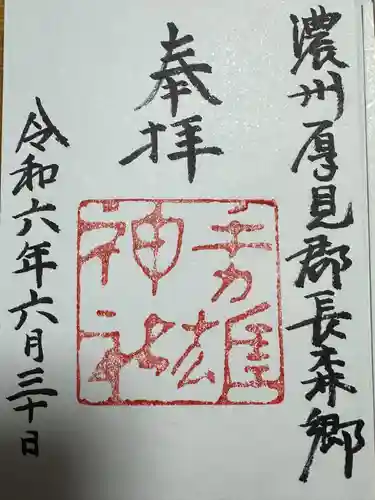 濃州厚見郡長森郷
奉拝
手力雄
神社
令和六年六月三十日